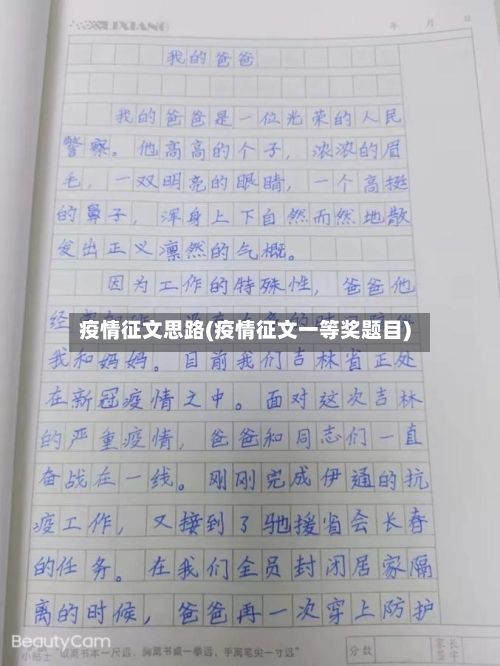 LIXIANG
年 月 日
我的爸爸
我的爸爸是一位光荣的人民
警察。他高高的个子，浓浓的眉
毛，一双明亮的眼睛，一个高挺
的鼻子，浑身上下自然而然地散
发出正义凛然的气概。
因为工作的特殊性，爸爸他
经
疫情征文思路(疫情征文一等奖题目)
我和妈妈。目前我们吉林省正处
在新冠疫情之中。面对这次吉林
的严重疫情，爸爸和同志们一直
奋战在一线。刚刚完成伊通的抗
疫工作，又接到了驰援省会长春
的任务。在我们全员封闭居家隔
离的时候，爸爸再一次穿上防护
BeautyCam
小贴士 眼离书本一尺远，胸离书桌一拳远，手离笔尖一寸远
分数
家长签字